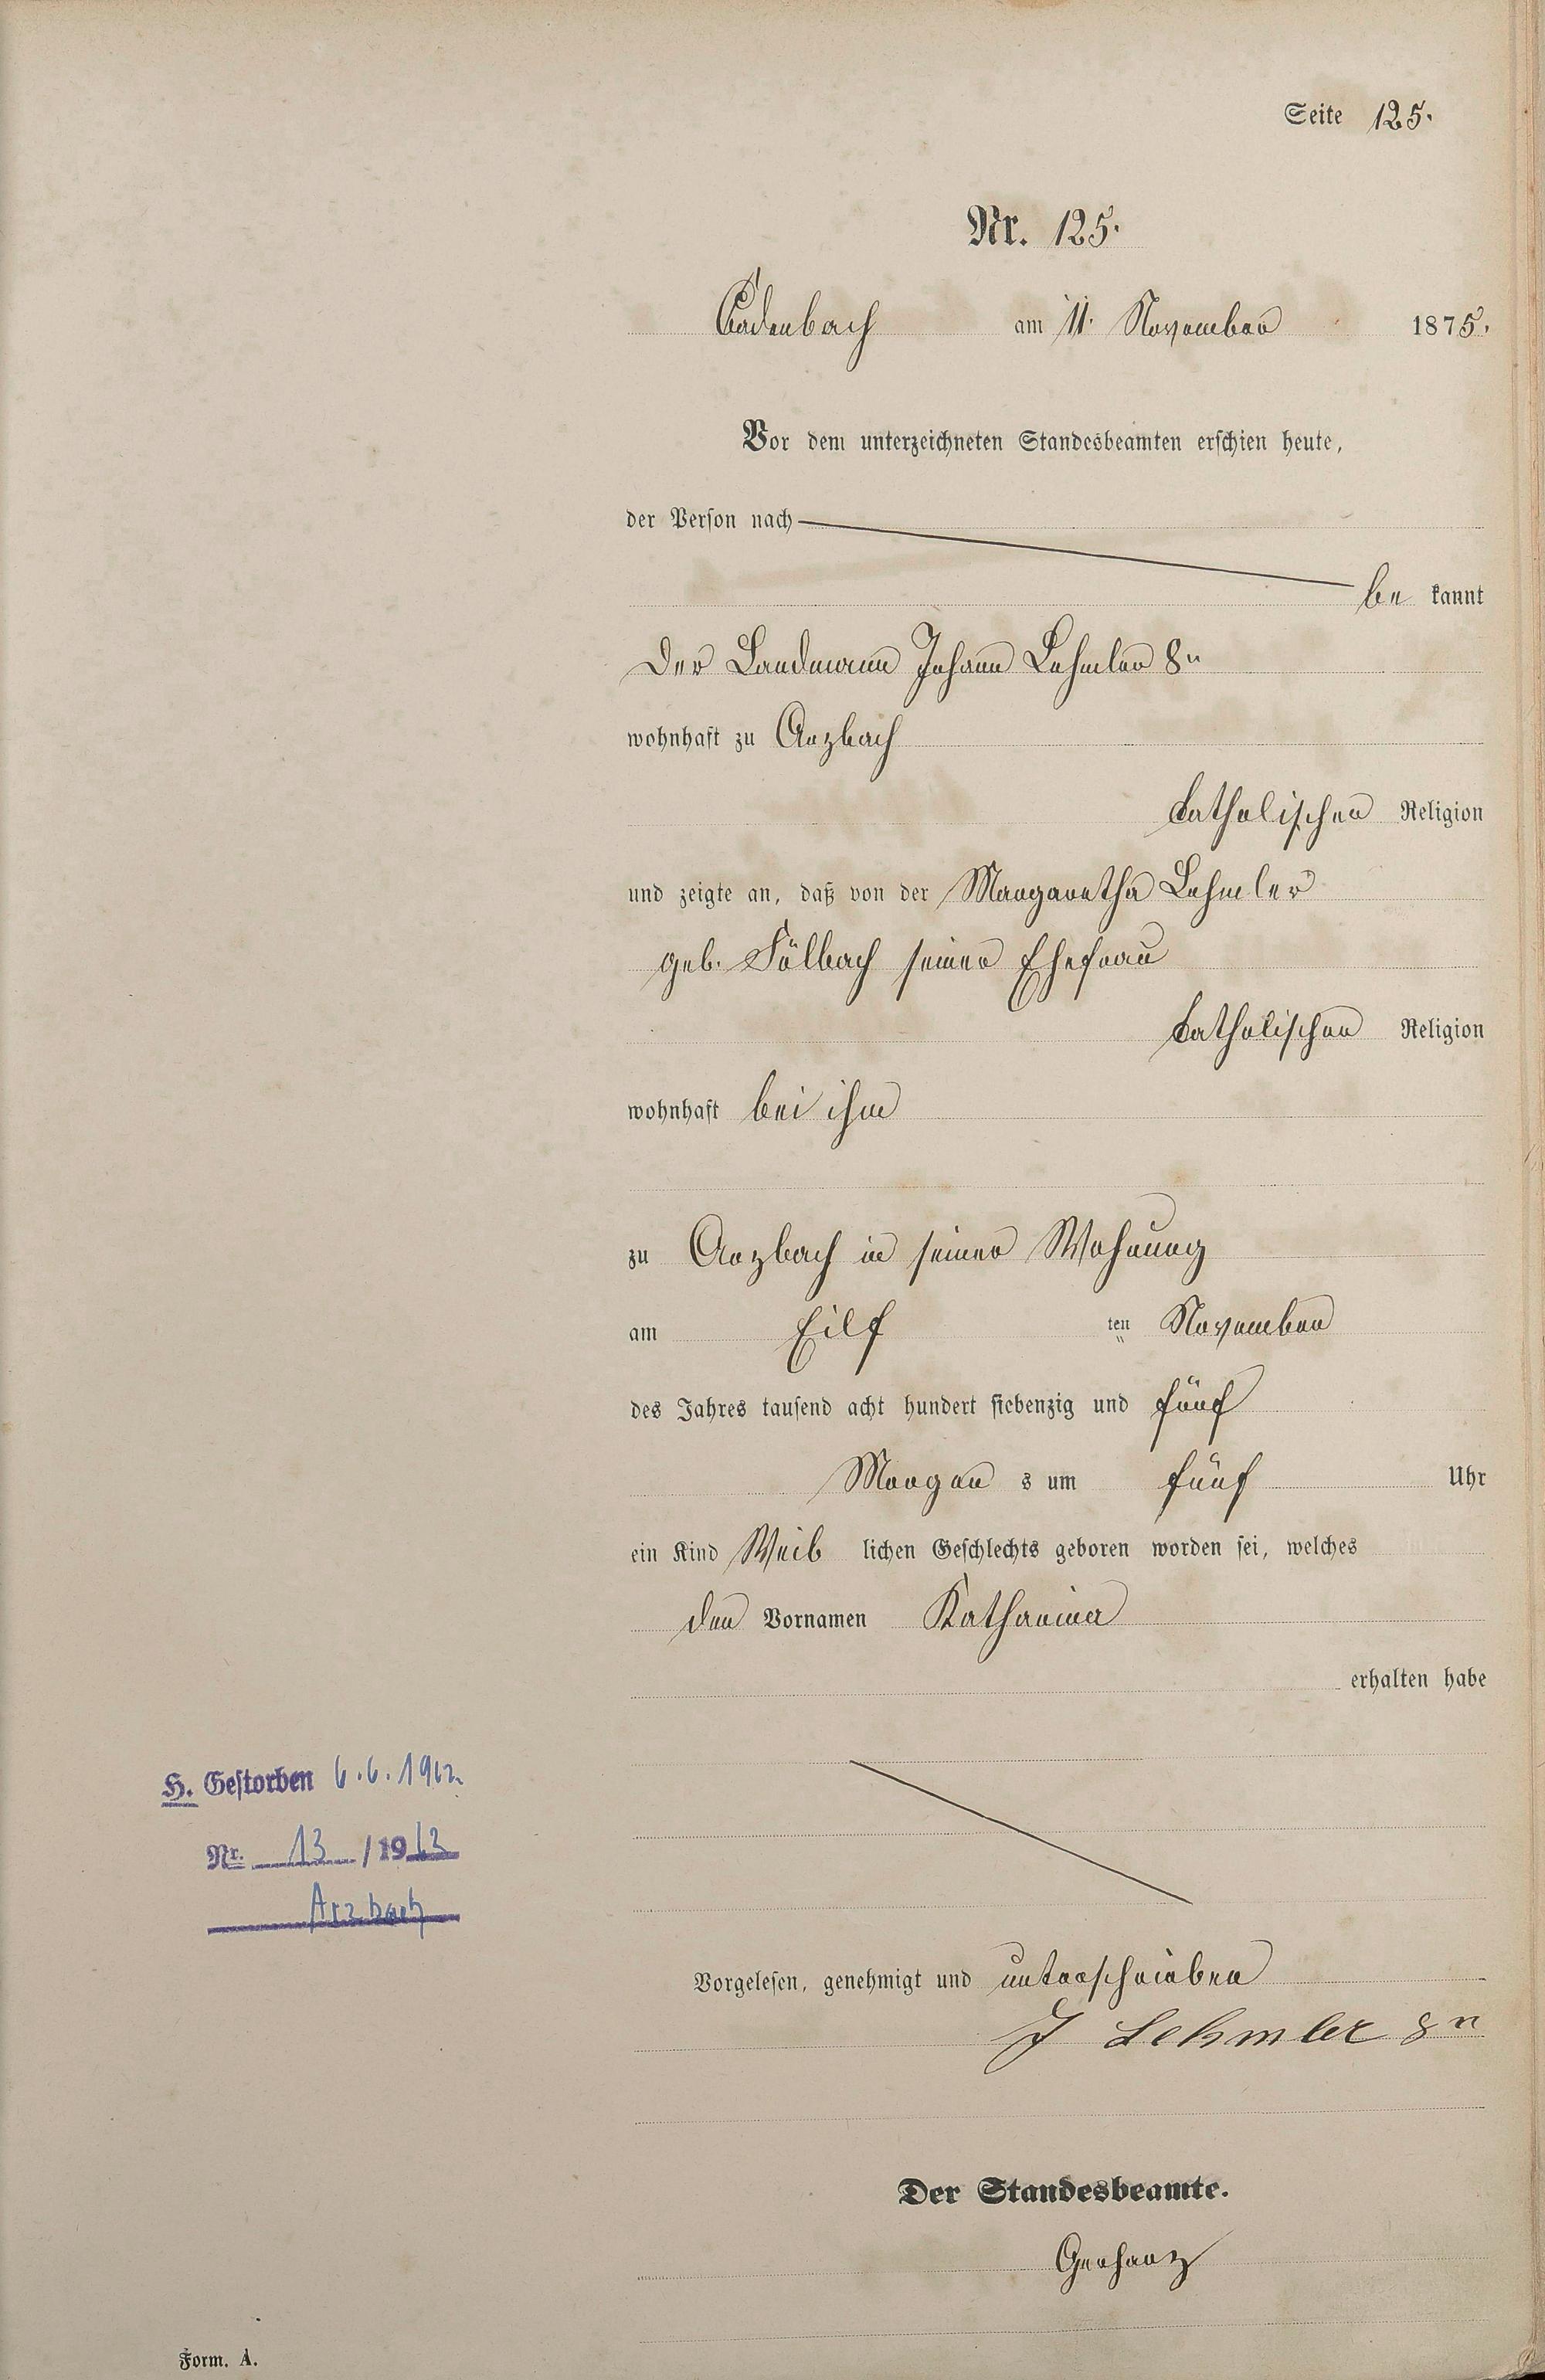 Seite 125.
Nr. 125.
Cadenbach am 11. November 1875.
Vor dem unterzeichneten Standesbeamten erschien heute,
der Person nach
be kannt
Der Landmann Johann Lehmler 8n
wohnhaft zu Arzbach
katholischer Religion
und zeigte an, daß von der Margaretha Lehmler
geb. Sölbach seiner Ehefrau
katholischer Religion
wohnhaft bei ihm
zu Arzbach in seiner Wohnung
am Eilf ten November
des Jahres tausend acht hundert siebenzig und fünf
Morgen s um fünf Uhr
ein Kind Weib lichen Geschlechts geboren worden sei, welches
den Vornamen Katharina
erhalten habe
H. Gestorben 6.6.1962
Nr. 13 / 19
Arzbach
Vorgelesen, genehmigt und unterschrieben
J Lehmler 8n
Der Standesbeamte.
Gerharz
Form. A.